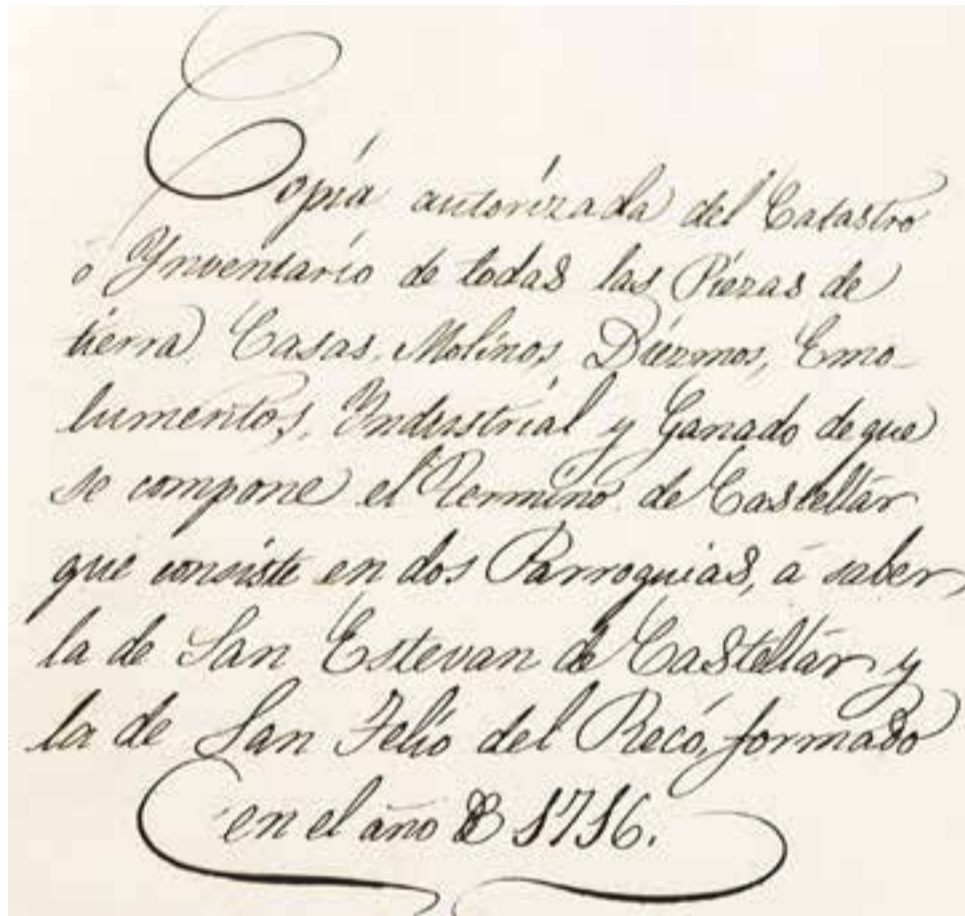 Copia autorizada del Catastro
o Ynventario de todas las Piezas de
tierra Casas, Molinos, Diezmos, Emo-
lumentos, Yndustrial y Ganado de que
se compone el Termino de Castellár
que consiste en dos Parroquias, á saber,
la de San Estevan de Castellár y
la de San Felio del Recó, formado
en el año de 1716.